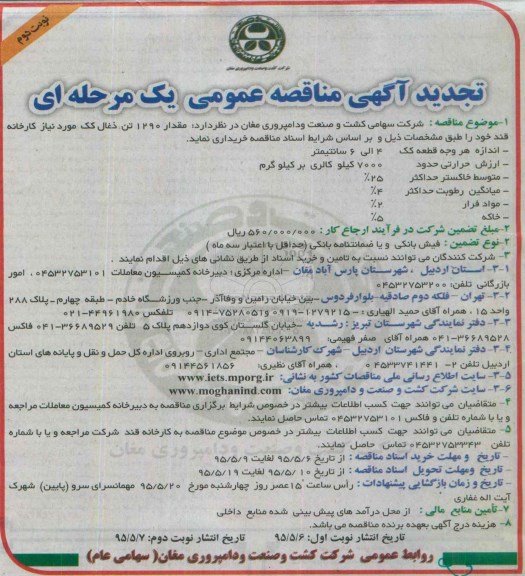 نوبت دوم
شرکت کشت و صنعت و دامپروری مغان
تجدید آگهی مناقصه عمومی یک مرحله ای
۱-موضوع مناقصه : شرکت سهامی کشت و صنعت ودامپروری مغان در نظردارد، مقدار ۱۲۹۰ تن ذغال کک مورد نیاز کارخانه
قند خود را طبق مشخصات ذیل و بر اساس شرایط اسناد مناقصه خریداری نماید.
- اندازه هر وجه قطعه کک ۴ الی ۶ سانتیمتر
- ارزش حرارتی حدود ۷۰۰۰ کیلو کالری بر کیلو گرم
- متوسط خاکستر حداکثر ۲۵٪
- میانگین رطوبت حداکثر ۴٪
- مواد فرار ۲٪
- خاکه ۵٪
۲-مبلغ تضمین شرکت در فرآیند ارجاع کار : ۵۶۰/۰۰۰/۰۰۰ ریال
۲-نوع تضمین : فیش بانکی و یا ضمانتنامه بانکی (حداقل با اعتبار سه ماه )
۳- شرکت کنندگان می توانند نسبت به تامین و خرید اسناد از طریق نشانی های ذیل اقدام نمایند .
۳-۱- استان اردبیل ، شهرستان پارس آباد مغان -اداره مرکزی؛ دبیرخانه کمیسیون معاملات ۰۴۵۳۲۷۵۳۱۰۱ ، امور
بازرگانی تلفن؛ ۰۴۵۳۲۷۵۳۲۰۰
۳-۲- تهران - فلکه دوم صادقیه -بلوارفردوس- بین خیابان رامین و وفاآذر -جنب ورزشگاه خادم - طبقه چهارم - پلاک ۲۸۸
واحد ۱۵ ، همراه آقای حمید الهیاری : ۰۹۱۹-۱۲۷۹۲۱۵ و ۰۹۱۴-۷۵۲۸۰۵۱ تلفکس ۴۴۹۶۱۹۸۰-۰۲۱
۳-۳- دفتر نمایندگی شهرستان تبریز : رشدیه -خیابان گلستان کوی دوازدهم پلاک ۵ تلفن ۳۶۶۸۹۵۲۹-۰۴۱ فاکس
۳۶۶۸۹۵۲۸-۰۴۱ همراه آقای صفر فهیمی: ۰۹۱۴۴۰۶۳۸۹۹
۳-۴- دفتر نمایندگی شهرستان اردبیل - شهرک کارشناسان - مجتمع اداری - روبروی اداره کل حمل و نقل و پایانه های استان
اردبیل تلفن ۲- ۰۴۵۳۳۷۴۱۴۴۱ ، همراه آقای نظیری: ۰۹۱۴۴۵۶۱۸۵۶
۳-۵- سایت اطلاع رسانی ملی مناقصات کشور به نشانی: www.iets.mporg.ir
۳-۶- سایت شرکت کشت و صنعت و دامپروری مغان: www.moghanind.com
۴- متقاضیان می توانند جهت کسب اطلاعات بیشتر در خصوص شرایط برگزاری مناقصه به دبیرخانه کمیسیون معاملات مراجعه
و یا با شماره تلفن و فاکس ۰۴۵۳۲۷۵۳۱۰۱ تماس حاصل نمایند.
۵- متقاضیان می توانند جهت کسب اطلاعات بیشتر در خصوص موضوع مناقصه به کارخانه قند شرکت مراجعه و یا با شماره
تلفن ۰۴۵۳۲۷۵۳۳۴۳ تماس حاصل نمایند.
- تاریخ و مهلت خرید اسناد مناقصه : از تاریخ ۹۵/۵/۶ لغایت ۹۵/۵/۹
- تاریخ ومهلت تحویل اسناد مناقصه : از تاریخ ۹۵/۵/۱۰ لغایت ۹۵/۵/۱۹
- تاریخ و زمان بازگشایی پیشنهادات : رأس ساعت ۱۵عصر روز چهارشنبه مورخ ۹۵/۵/۲۰ مهمانسرای سرو (پایین) شهرک
آیت اله غفاری
۷-تأمین منابع مالی : از محل درآمد های پیش بینی شده منابع داخلی
۸- هزینه درج آگهی بعهده برنده مناقصه می باشد.
تاریخ انتشار نوبت اول: ۹۵/۵/۶ تاریخ انتشار نوبت دوم: ۹۵/۵/۷
روابط عمومی شرکت کشت وصنعت ودامپروری مغان( سهامی عام)